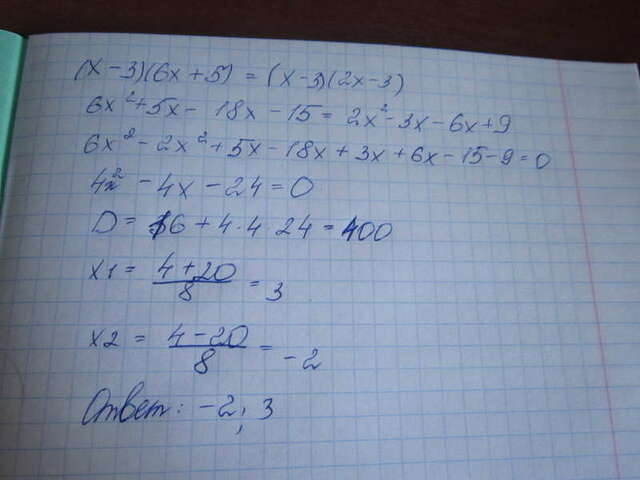 (x-3)(6x+5) = (x-3)(2x-3)
6x²+5x- 18x -15= 2x²-3x-6x+9
6x²-2x²+5x-18x+3x+6x-15-9=0
4x²-4x-24=0
D= 16+4·4·24=400
x1= 4+20/8 = 3
x2 = 4-20/8 = -2
Ответ: -2; 3